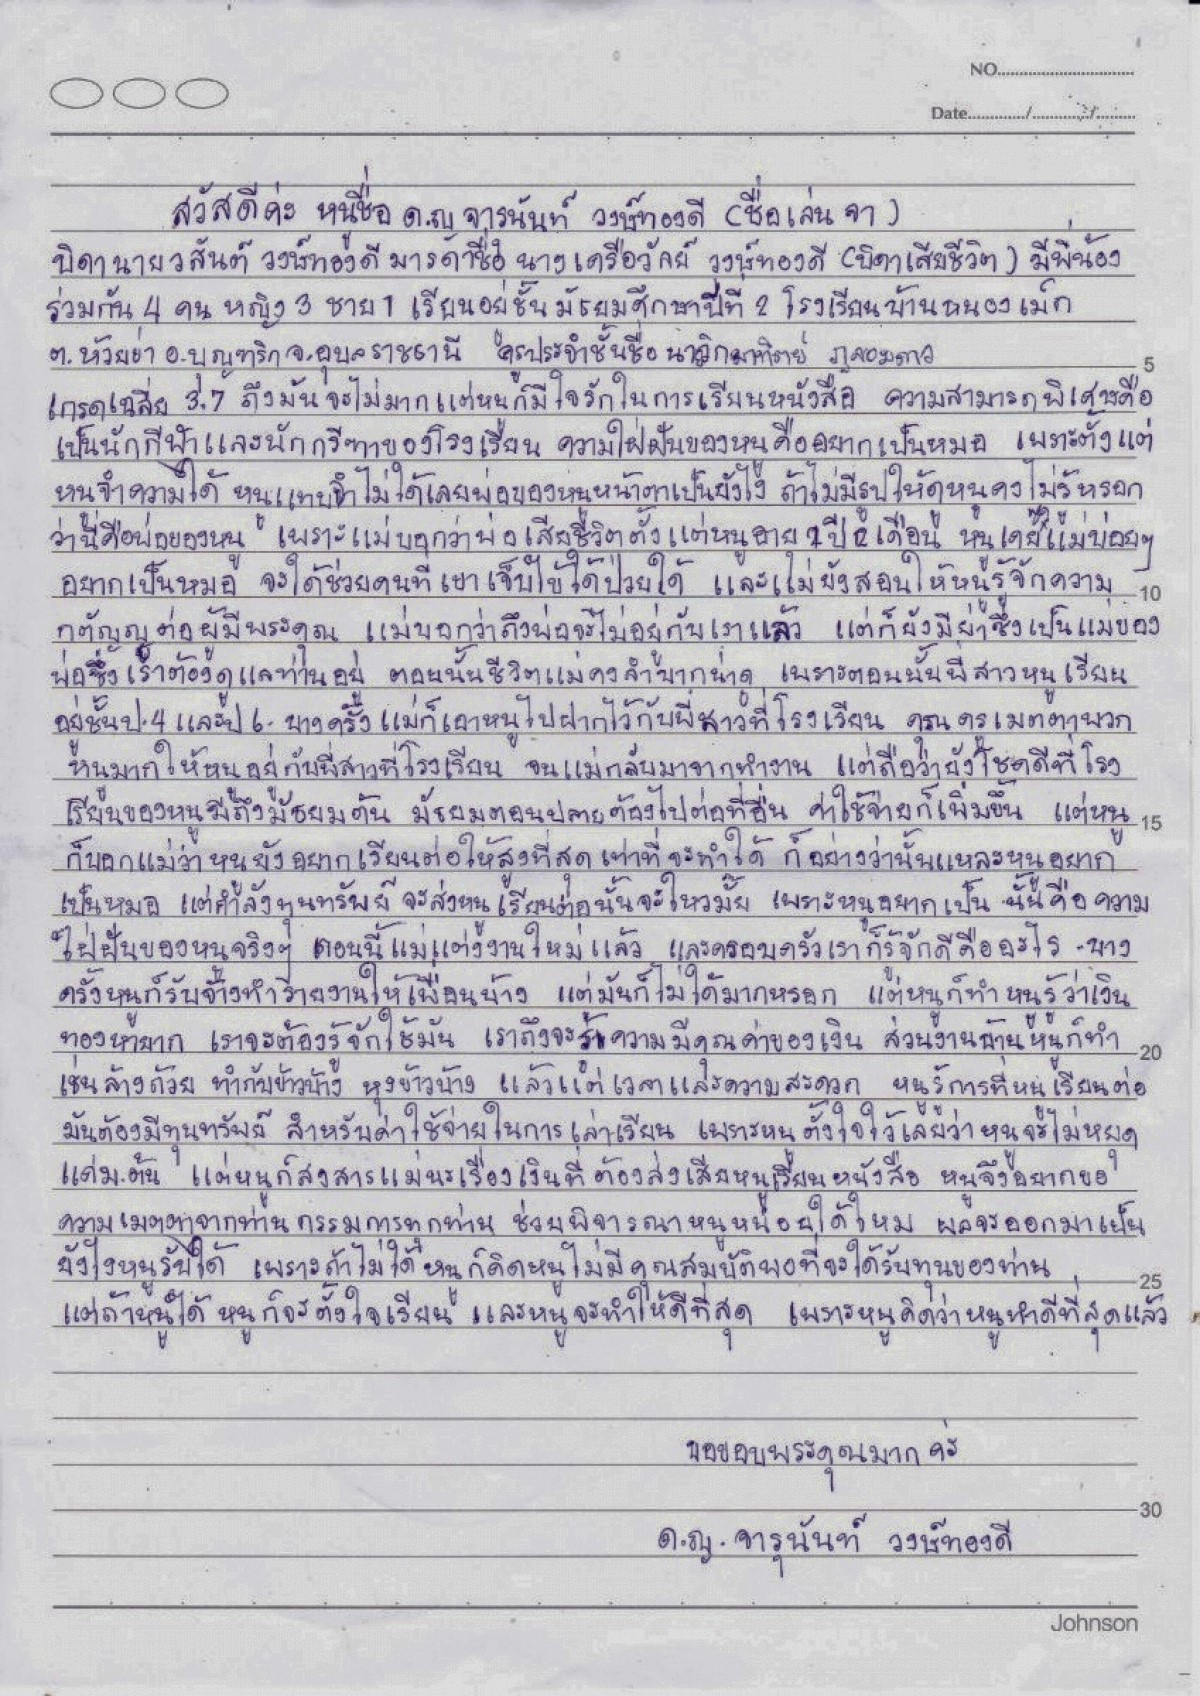 NO.
Date / /
สวัสดีค่ะ หนูชื่อ ด.ญ จารุนันท์ วงษ์ทองดี (ชื่อเล่น จา)
บิดานายวสันต์ วงษ์ทองดี มารดาชื่อ นางเครือวัลย์ วงษ์ทองดี (บิดาเสียชีวิต) มีพี่น้อง
ร่วมกัน 4 คน หญิง 3 ชาย 1 เรียนอยู่ชั้น มัธยมศึกษาปีที่ 2 โรงเรียนบ้านหนองเม็ก
ต.ห้วยข่า อ.บุณฑริก จ.อุบลราชธานี ครูประจำชั้นชื่อ
เกรดเฉลี่ย 3.7 ถึงมันจะไม่มากแต่หนูก็มีใจรักในการเรียนหนังสือ ความสามารถพิเศษคือ
เป็นนักกีฬาและนักกรีฑาของโรงเรียน ความใฝ่ฝันของหนูคืออยากเป็นหมอ เพราะตั้งแต่
หนูจำความได้ หนูแทบจำไม่ได้เลยพ่อของหนูหน้าตาเป็นยังไง ถ้าไม่มีรูปให้ดูหนูคงไม่รู้หรอก
ว่านี่คือพ่อของหนู เพราะแม่บอกว่าพ่อเสียชีวิตตั้งแต่หนูอายุ 1 ปี 2 เดือน หนูเคย แม่บ่อยๆ
อยากเป็นหมอ จะได้ช่วยคนที่เขาเจ็บไข้ได้ป่วยได้ และแม่ยังสอนให้หนูรู้จักความ
กตัญญูต่อผู้มีพระคุณ แม่บอกว่าถึงพ่อจะไม่อยู่กับเราแล้ว แต่ก็ยังมีย่าซึ่งเป็นแม่ของ
พ่อซึ่งเราต้องดูแลท่านอยู่ ตอนนั้นชีวิตแม่คงลำบากน่าดู เพราะตอนนั้นพี่สาวหนูเรียน
อยู่ชั้นป.4 และป 6. บางครั้งแม่ก็เอาหนูไปฝากไว้กับพี่สาวที่โรงเรียน คุณครูเมตตาพวก
หนูมากให้หนูอยู่กับพี่สาวที่โรงเรียน จนแม่กลับมาจากทำงาน แต่ถือว่ายังโชคดีที่โรง
เรียนของหนูมีถึงมัธยมต้น มัธยมตอนปลายต้องไปต่อที่อื่น ค่าใช้จ่ายก็เพิ่มขึ้น แต่หนู
ก็บอกแม่ว่าหนูยังอยากเรียนต่อให้สูงที่สุดเท่าที่จะทำได้ ก็อย่างว่านั้นแหละหนูอยาก
เป็นหมอ แต่กำลังทุนทรัพย์จะส่งหนูเรียนต่อนั้นจะไหวมั้ย เพราะหนูอยากเป็น นั้นคือความ
ใฝ่ฝันของหนูจริงๆ ตอนนี้แม่แต่งงานใหม่แล้ว และครอบครัวเราก็รู้จักดีคืออะไร บาง
ครั้งหนูก็รับจ้างทำรายงานให้เพื่อนบ้าง แต่มันก็ไม่ได้มากหรอก แต่หนูก็ทำ หนูรู้ว่าเงิน
ทองหายาก เราจะต้องรู้จักใช้มัน เราถึงจะรู้ความมีคุณค่าของเงิน ส่วนงานบ้านหนูก็ทำ
เช่นล้างถ้วย ทำกับข้าวบ้าง หุงข้าวบ้าง แล้วแต่เวลาและความสะดวก หนูรู้การที่หนูเรียนต่อ
มันต้องมีทุนทรัพย์ สำหรับค่าใช้จ่ายในการเล่าเรียน เพราะหนูตั้งใจไว้เลยว่าหนูจะไม่หยุด
แค่ม.ต้น แต่หนูก็สงสารแม่นะเรื่องเงินที่ต้องส่งเสียหนูเรียนหนังสือ หนูจึงอยากขอ
ความเมตตาจากท่านกรรมการทุกท่าน ช่วยพิจารณาหนูหน่อยได้ไหม ผลจะออกมาเป็น
ยังไงหนูรับได้ เพราะถ้าไม่ได้หนูก็คิดหนูไม่มีคุณสมบัติพอที่จะได้รับทุนของท่าน
แต่ถ้าหนูได้ หนูก็จะตั้งใจเรียน และหนูจะทำให้ดีที่สุด เพราะหนูคิดว่าหนูทำดีที่สุดแล้ว
ขอขอบพระคุณมาก ค่ะ
ด.ญ. จารุนันท์ วงษ์ทองดี
5
10
15
20
25
30
Johnson